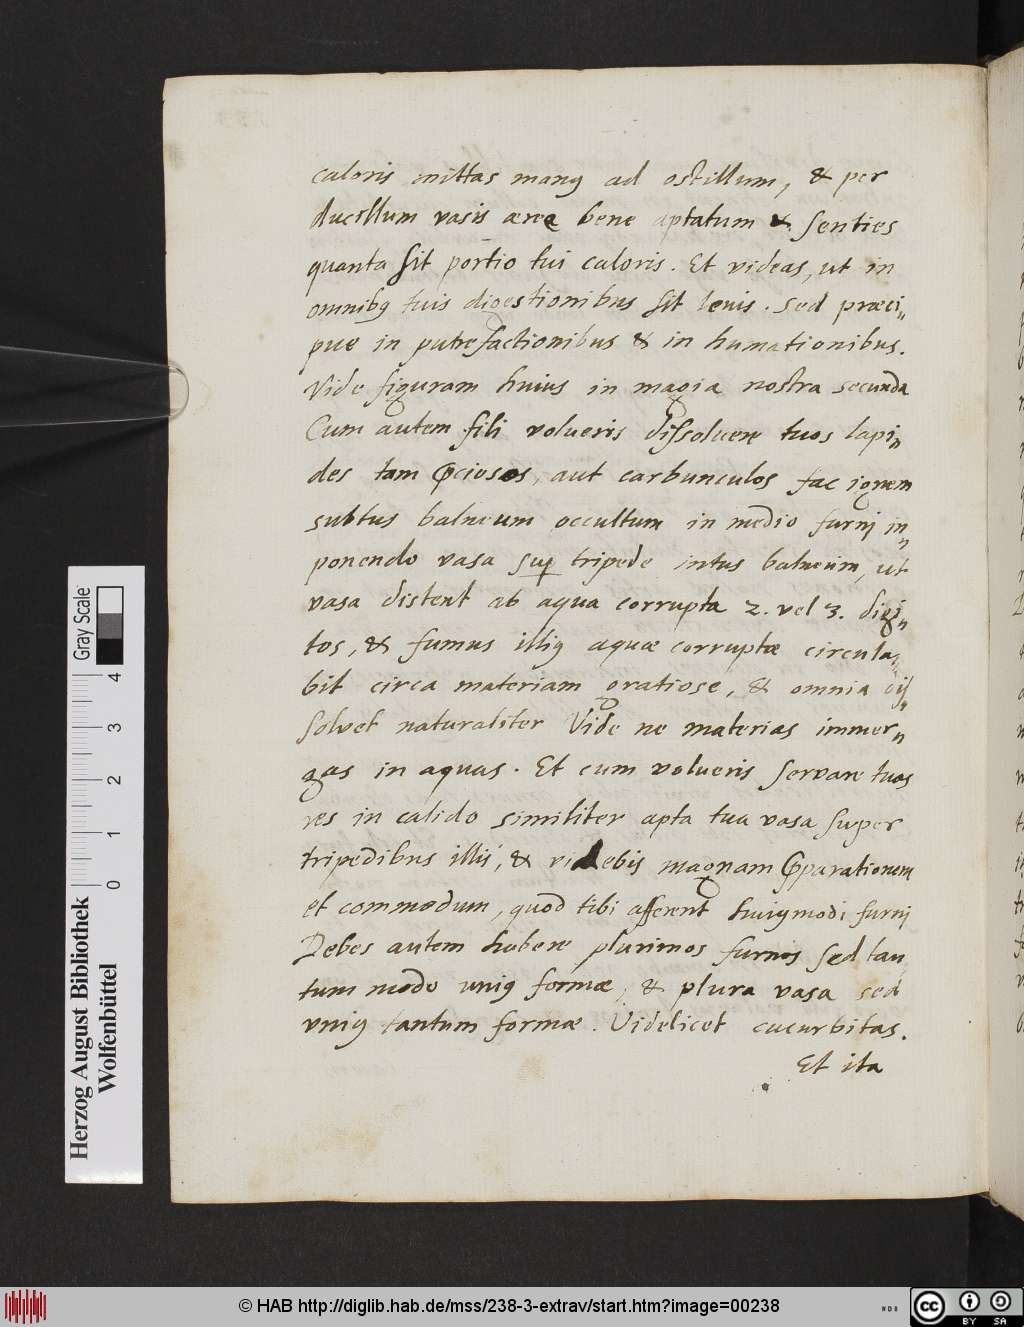 caloris mittas manꝰ ad ostillum, & per
ducillum vasis æreę bene aptatum & senties
quanta sit portio tui caloris. Et videas, ut in
omnibꝰ tuis digestionibus sit levis. Sed præci„
pue in putrefactionibus & in humationibus.
Vide figuram huius in magia nostra secunda
Cum autem fili volueris dissoluere tuos lapi„
des tam p̄ciosos, aut carbunculos fac ignem
subtus balneum occultum in medio furnj im„
ponendo vasa suꝑ tripede intus balneum, ut
vasa distent ab aqua corrupta 2. vel 3. digi„
tos, & fumus illiꝰ aquæ corruptæ circula„
bit circa materiam gratiose, & omnia dis„
solvet naturaliter Vide ne materias immer„
gas in aquas. Et cum volueris servare tuas
res in calido similiter apta tua vasa super
tripedibus illis, & videbis magnam p̄parationem
et commodum, quod tibi afferent huiꝰmodi furnj
Debes autem habere plurimos furnos sed tan„
tum modo uniꝰ formæ, & plura vasa sed
vniꝰ tantum formæ. Videlicet cucurbitas.
Et ita
Herzog August Bibliothek
Wolfenbüttel
Gray Scale
0 1 2 3 4
© HAB http://diglib.hab.de/mss/238-3-extrav/start.htm?image=00238
CC BY SA